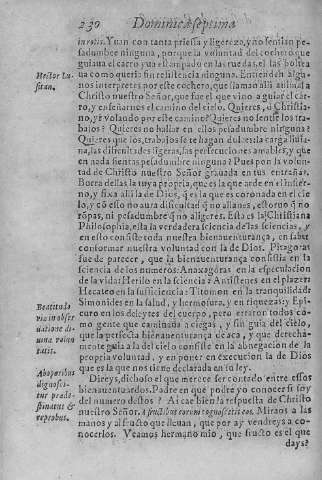 230 Dominicæ septima
in rotis. Yuan con tanta priessa y ligereza, y no sentian pe-
sadumbre ninguna, porque la voluntad del cochero que
guiaua el carro yua estampado en las ruedas, el las boltea
Hector Lu-
sitan.
ua como queria sin resistencia ninguna. Entienden algu-
nos interpretes por este cochero, que llaman alli animal a
Christo nuestro Señor, que fue el que vino a guiar el car-
ro, y enseñarnes el camino del cielo. Quieres, ò Christia-
no, yr volando por este camino? Quieres no sentir los tra-
bajos? Quieres no hallar en ellos pesadumbre ninguna?
Quieres que los trabajos se te hagan dulces, la carga liuia-
na, las dificultades ligeras, las persecuciones amables, y que
en nada sientas pesadumbre ninguna? Pues pon la volun-
tad de Christo nuestro Señor grauada en tus entrañas.
Borra dellas la tuya propria, que es la que arde en el infier-
no, y fixa alli la de Dios, q̃ es la que es coronada en el cie
lo, y cõ esso no aura dificultad q̃ no allanes, estoruo q̃ no
rõpas, ni pesadumbre q̃ no aligeres. Esta es la Christiana
Philosophia, esta la verdadera sciencia de las sciencias, y
en esto consiste toda nuestra bienauenturança, en saber
conformar nuestra voluntad con la de Dios. Pitagoras
fue de parecer, que la bienauenturança consistia en la
sciencia de los numeros: Anaxagoras en la especulacion
de la vida: Herilo en la sciencia: Antistenes en el plazer:
Hecateo en la sufficiencia: Titomon en la tranquilidad:
Simonides en la salud, y hermosura, y en riquezas: y Epi-
Beatitudo
vio in obser
uatione di-
uinæ volun
tatis.
curo en los deleytes del cuerpo, pero erraron todos co-
mo gente que caminaua a ciegas, y sin guia del cielo,
que la perfecta bienauenturança de aca, y que derecha-
mente guia a la del cielo consiste en la abnegacion de la
propria voluntad, y en poner en execucion la de Dios
que es la que nos tiene declarada en su ley.
A operibus
dignosci-
tur præde-
stinatus &
reprobus.
Direys, dichoso el que merece ser contado entre essos
bienauenturados. Padre en que podre yo conocer si soy
del numero destos? Ai cae bien la respuesta de Christo
nuestro Señor. A fructibus eorum cognoscetis eos. Miraos a las
manos y al fructo que lleuan, que por ay vendreys a co-
nocerlos. Veamos hermano mio, que fructo es el que
days?